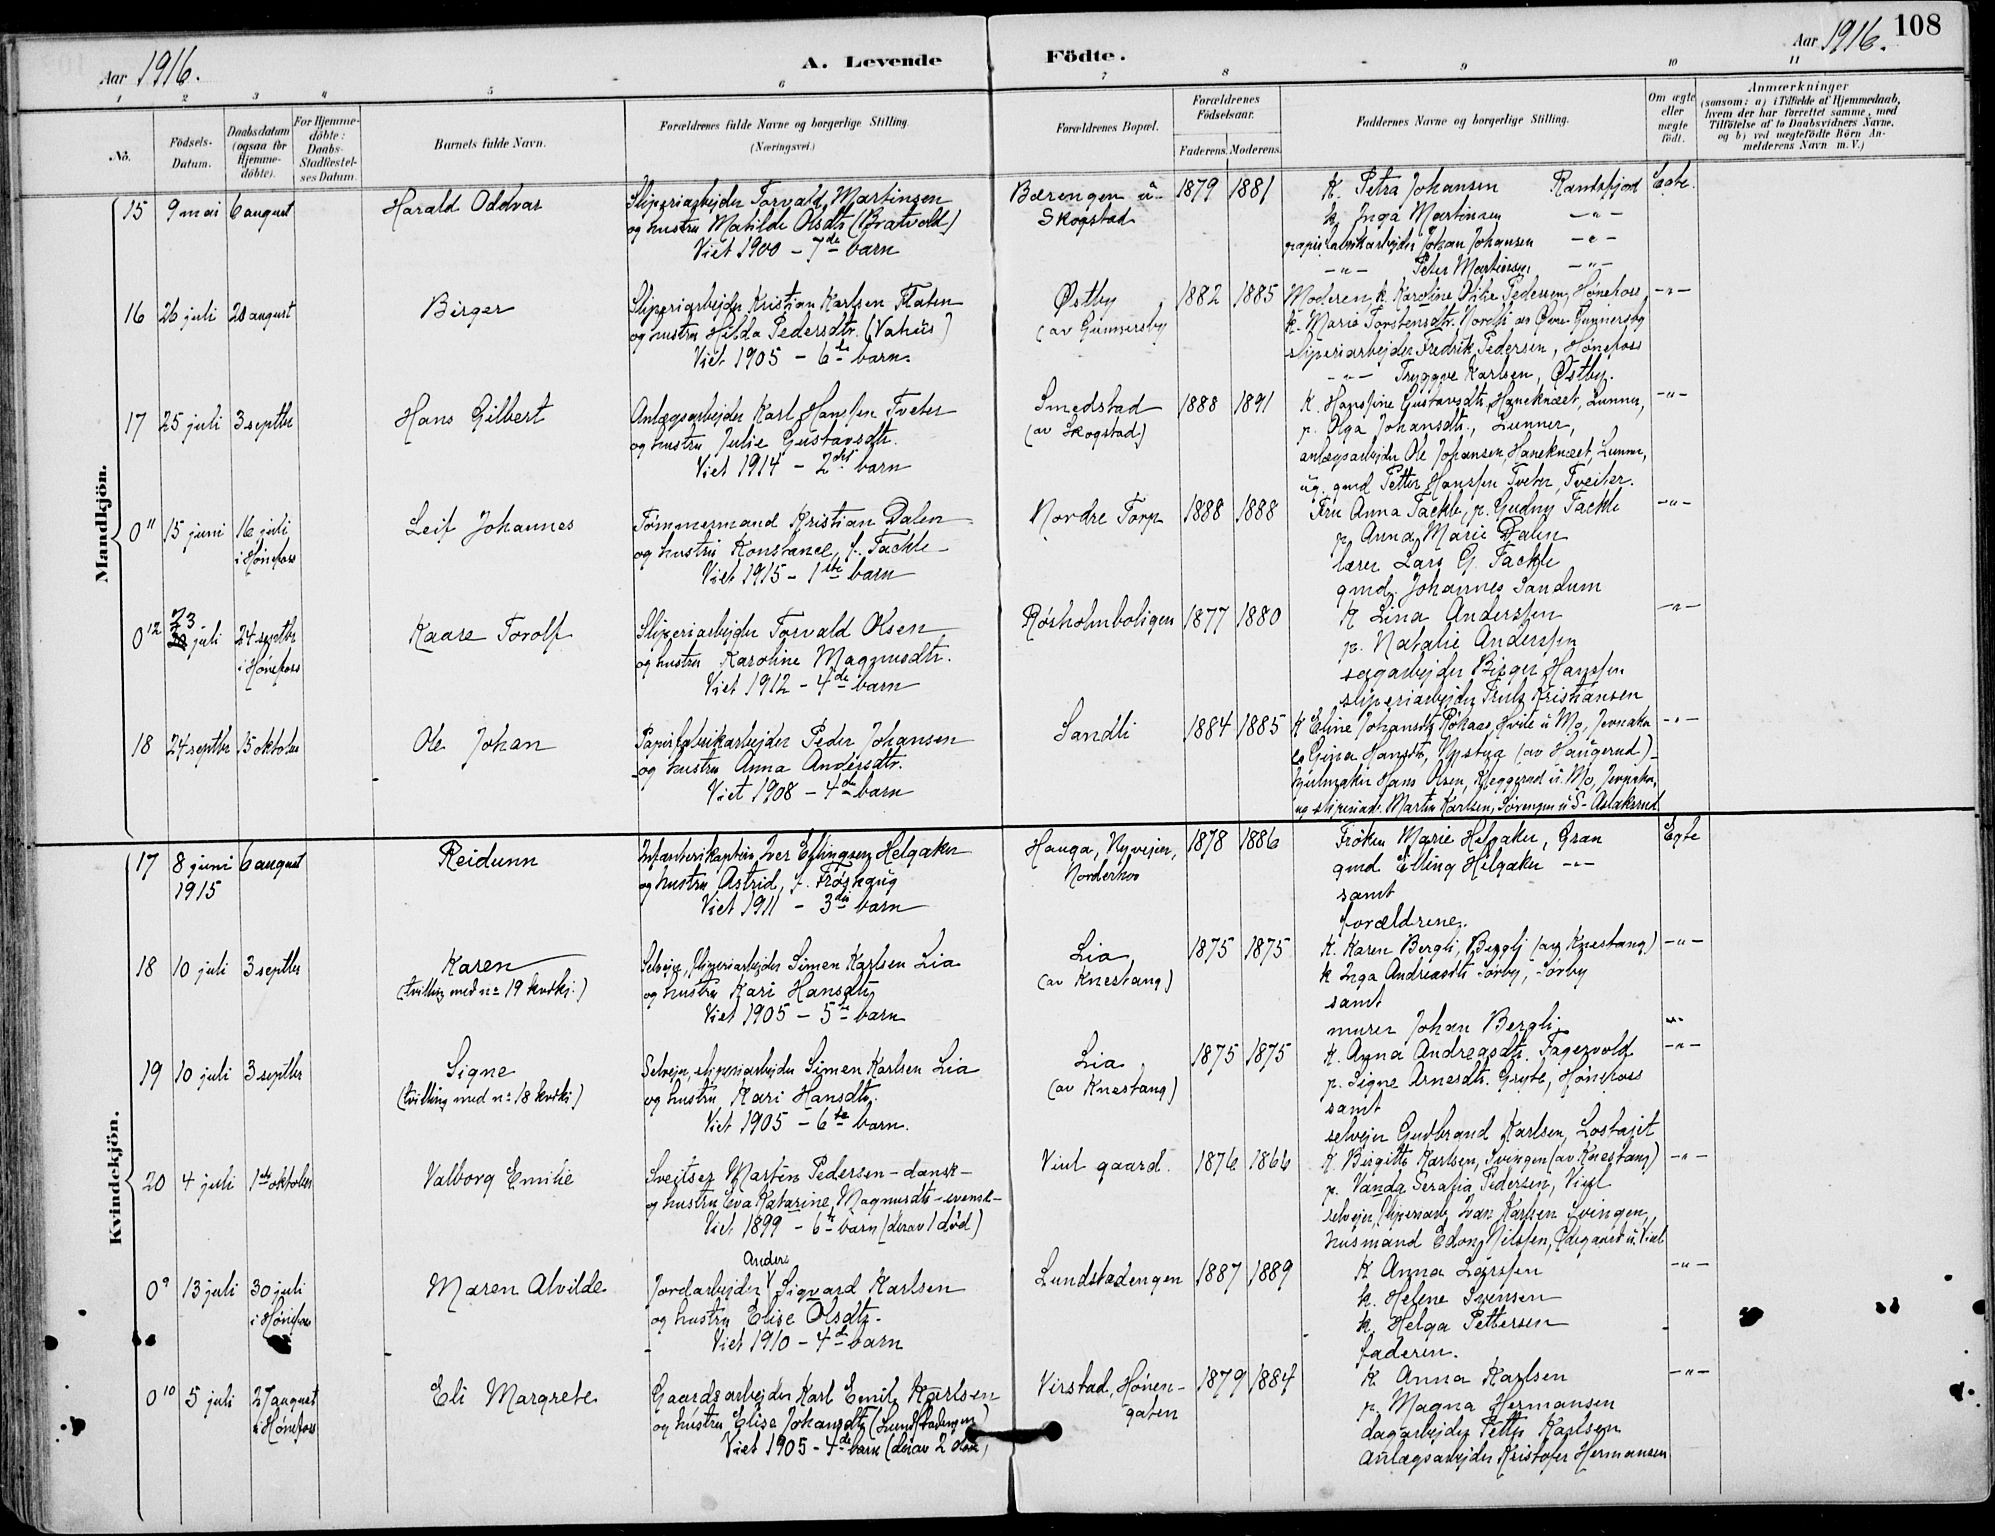 108
Aar 1916.
A. Levende Födte.
Aar 1916.
1 2 3 4 5 6 7 8 9 10 11
No.
Födsels-Datum.
Daabsdatum (ogsaa for Hjemme-döbte).
For Hjemme-döbte: Daabs-Stadfæstel-ses Datum.
Barnets fulde Navn.
Forældrenes fulde Navne og borgerlige Stilling
(Næringsvei.)
Forældrenes Bopæl.
Forældrenes Födselsaar.
Faderens. Moderens.
Faddernes Navne og borgerlige Stilling.
Om ægte eller uægte født.
Anmærkninger
(saasom: a) i Tilfælde af Hjemmedaab, hvem der har forrettet samme, med Tilföielse af to Daabsvidners Navne, og b) ved uægtefödte Börn An-melderens Navn m. V.)
Mandkjön.
15 9 mai 6 august Harald Oddvar
Sliperiarbejder Torvald Martinsen
og hustru Matilde Olsdtr (Bratvold)
Viet 1900 - 7de barn
Bærengen u. Skogstad 1879 1881
K. Petra Johansen Randsfjord Egte.
k. Inga Martinsen -"-
papirfabrikarbejder Johan Johansen -"-
-"- Peter Martinsen -"-
16 26 juli 20 august Birger
Sliperiarbejder Kristian Karlsen Flaten
og hustru Hilda Pedersdtr. (Vahus)
Viet 1905 - 6te barn.
Østby (av Gunnersby) 1882 1885
Moderen, k. Karoline Pedersen, Hønefoss -"-
k. Marie Torstensdtr. av Øvre Gunnersby
sliperiarbejder Fredrik Pedersen, Hønefoss
-"- Tryggve Karlsen, Østby.
17 25 juli 3 septbr Hans Gilbert
Anlægsarbejder Karl Hanssen Tveter
og hustru Julie Gustavsdtr.
Viet 1914 - 2det barn
Smedstad (av Skogstad) 1888 1891
K. Hanssine Gustavsdtr, Haneknæet, Lunner, -"-
p. Olga Johansdtr., Lunner,
anlægsarbejder Ole Johansen, Haneknæet, Lunner,
ug. gmd Petter Hanssen Tveter, Tveiter.
0" 15 juni 16 juli i Hønefoss Leif Johannes
Tømmermand Kristian Dalen
og hustru Konstance, f. Fackle
Viet 1915 - 1ste barn
Nordre Torp 1888 1888
Fru Anna Fackle, p. Gudny Fackle -"-
p. Anna Marie Dalen
lærer Lars G. Fackle
gmd. Johannes Sandum
0 12 23 juli 24 septbr i Hønefoss Kaare Torolf
Sliperiarbejder Torvald Olsen
og hustru Karoline Magnusdtr.
Viet 1912 - 4de barn
Røsholmboligen 1877 1880
K Lina Anderssen -"-
p. Natalie Anderssen
sagarbejder Birger Hanssen
sliperiarbejder Truls Kristiansen
18 24 septbr 15 oktober Ole Johan
Papirfabrikarbejder Peder Johansen
og hustru Anna Andersdtr.
Viet 1908 - 4de barn
Sandli 1884 1885
K Eline Johansdtr, Hvile u Mo, Jevnaker -"-
p Gina Hansdtr, Nystua (av Haugerud)
hjulmaker Hans Olsen, Kleggerud u. Mo, Jevnaker,
og sliperiarb. Martin Karlsen, Sørengen u S- Aslaksrud
Kvindekjön.
17 8 juni 1915 6 august Reidunn
Infanterikaptein Iver Ellingsen Helgaker
og hustru Astrid, f. Frøshaug
Viet 1911 - 3die barn
Hauga, Nyvejen, Norderhov 1878 1886
Frøken Marie Helgaker, Gran Egte
gmd Elling Helgaker -"-
samt
forældrene.
18 10 juli 3 septbr Karen
(tvilling med no 19 kvdkj.)
Selvejer, sliperiarbejder Simen Karlsen Lia
og hustru Kari Hansdtr
Viet 1905 - 5te barn
Lia (av Knestang) 1875 1875
K. Karen Bergli, Bergli (av Knestang) -"-
k Inga Andreasdtr Sørby, Sørby
samt
murer Johan Bergli
19 10 juli 3 septbr Signe
(tvilling med no 18 kvdkj.)
Selvejer, sliperiarbejder Simen Karlsen Lia
og hustru Kari Hansdtr.
Viet 1905 - 6te barn.
Lia (av Knestang) 1875 1875
K. Anna Andreasdtr. Fagervold -"-
p. Signe Arnesdtr. Gryte, Hønefoss
samt
selvejer Gudbrand Karlsen,
20 4 juli 1ste oktober Valborg Emilie
Sveitser Martin Pedersen - dansk -
og hustru Eva Katarine Magnusdtr - svensk -
Viet 1899 - 6te barn (derav 1 død)
Viul gaard. 1876 1866
K. Birgitte Karlsen, Svingen (av Knestang) -"-
p. Vanda Serafia Pedersen, Viul
selvejer, sliperiarb. Ivar Karlsen Svingen,
husmand Edon Nilssen, Ødegaard u. Viul
0 9 13 juli 30 juli i Hønefoss Maren Alvilde
Jordarbejder Anders Sigvard Karlsen
og hustru Elise Olsdtr.
Viet 1910 - 4de barn
Lundstadengen 1887 1889
K Anna Larssen -"-
k. Helene Svensen
k. Helga Pettersen
faderen.
0 10 5 juli 27 august i Hønefoss Eli Margrete
Gaardsarbejder Karl Emil Karlsen
og hustru Elise Johansdtr (Lundstadengen)
Viet 1905 - 4de barn (derav 2 døde)
Virstad, Hønen-gaten 1879 1884
K. Anna Karlsen -"-
p. Magna Hermansen
dagarbejder Petter Karlsen
Anlægsarbejder Kristofer Hermansen